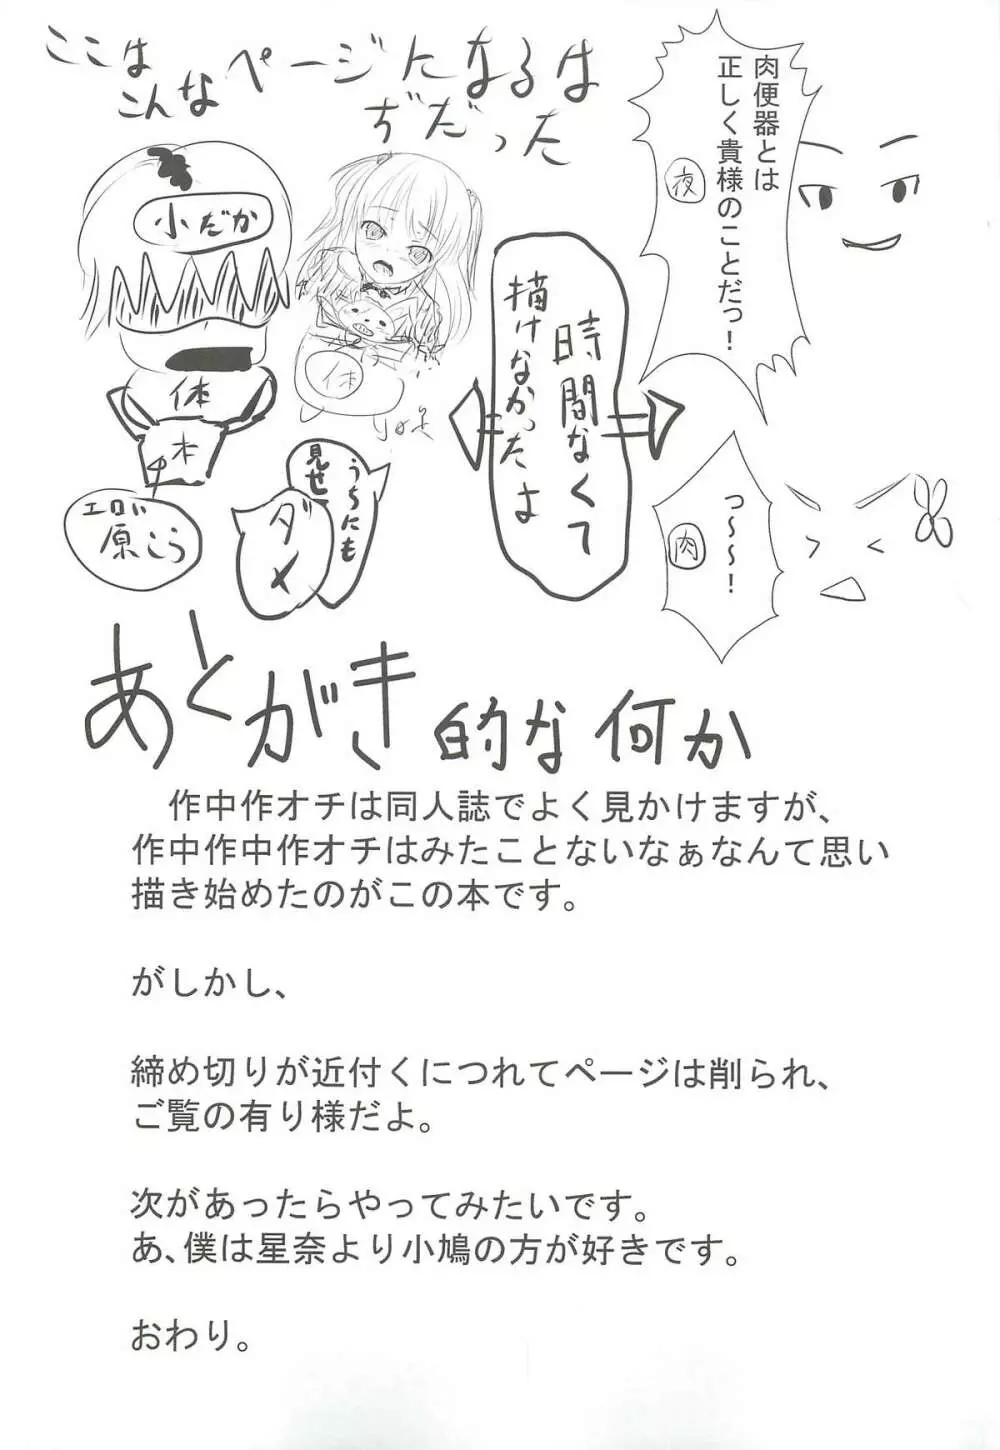 ここは
こんなページになるは
ずだった
肉便器とは
正しく貴様のことだっ！
夜
小だか
体
本
体
時間なくて
描けなかったよ
うちにも
見せ
ダメ
エロい
原こう
っ～～～！
肉
あとがき的な何か
作中作オチは同人誌でよく見かけますが、
作中作中作オチはみたことないなぁなんて思い
描き始めたのがこの本です。
がしかし、
締め切りが近付くにつれてページは削られ、
ご覧の有り様だよ。
次があったらやってみたいです。
あ、僕は星奈より小鳩の方が好きです。
おわり。